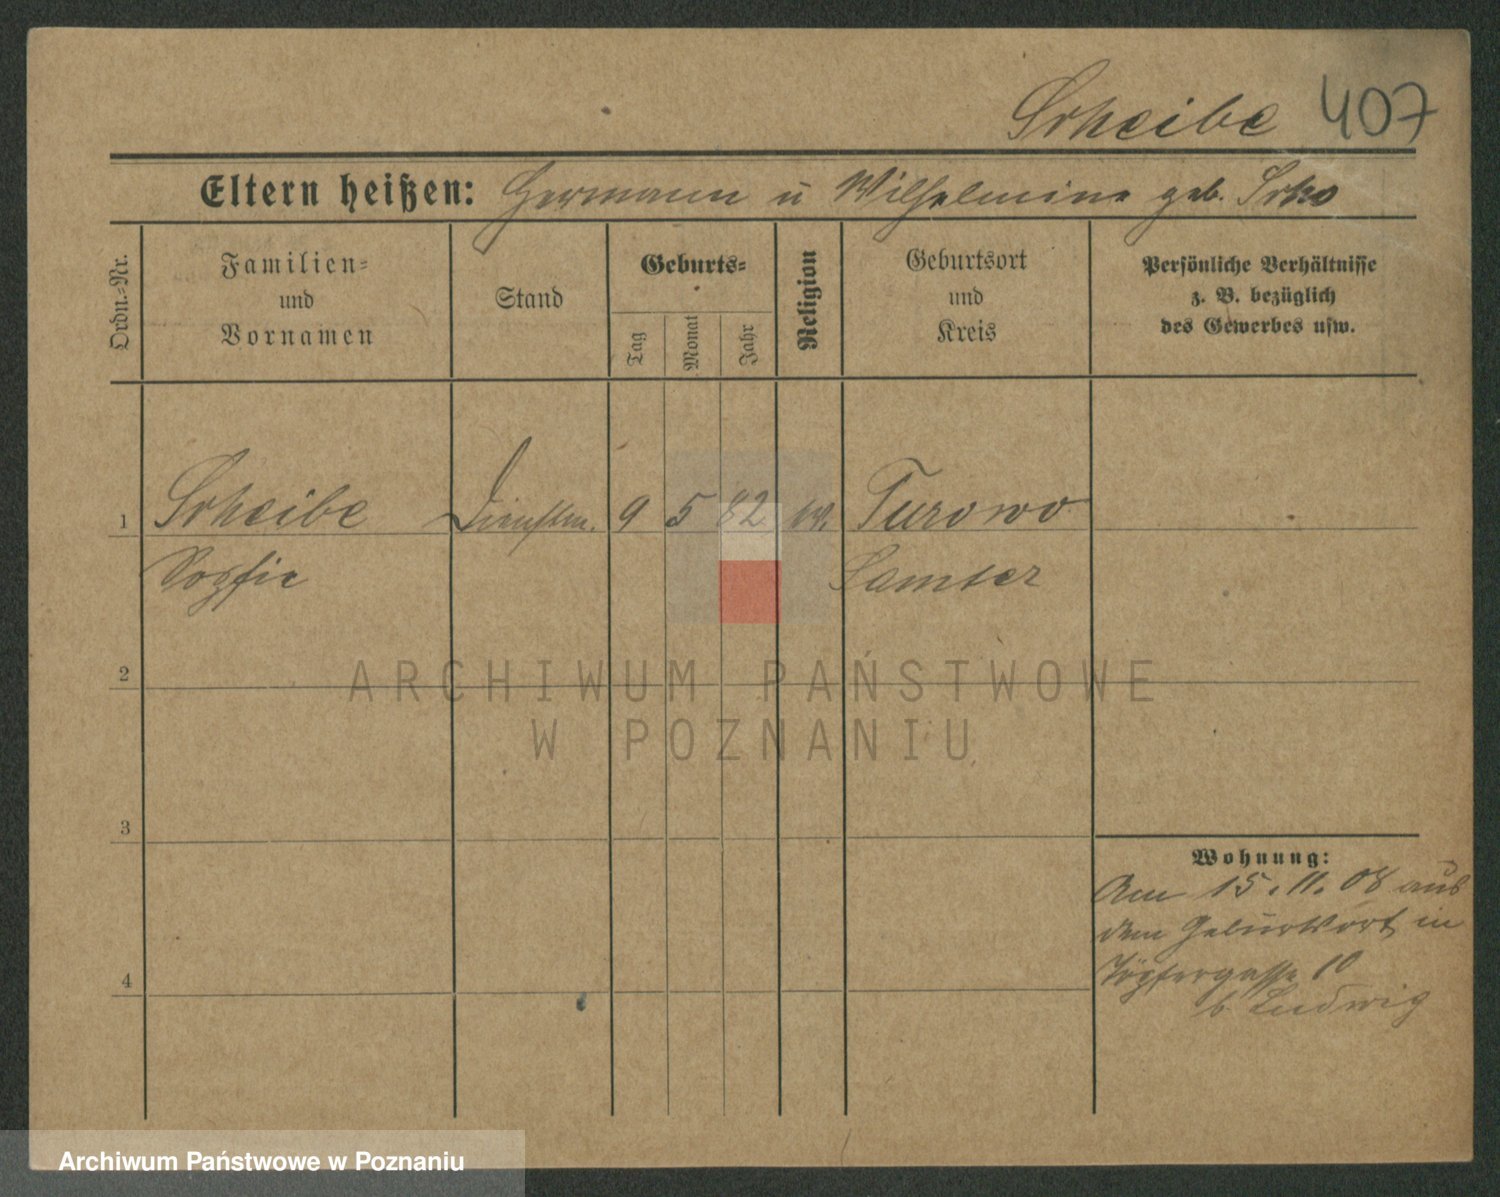 Scheibe 407
Eltern heißen: Hermann u Wilhelmine geb.
Ordn.-Nr.
Familien-
und
Vornamen
Stand
Geburts-
Tag
Monat
Jahr
Religion
Geburtsort
und
Kreis
Persönliche Verhältnisse
z. B. bezüglich
des Gewerbes usw.
1 Scheibe Dienstm. 9 5 82 ev. Turowo
Sophie Samter
2
ARCHIWUM PAŃSTWOWE
W POZNANIU
3
Wohnung:
Am 15.11.08 aus
dem Geburtsort in
4 Töpfergasse 10
b. Ludwig
Archiwum Państwowe w Poznaniu